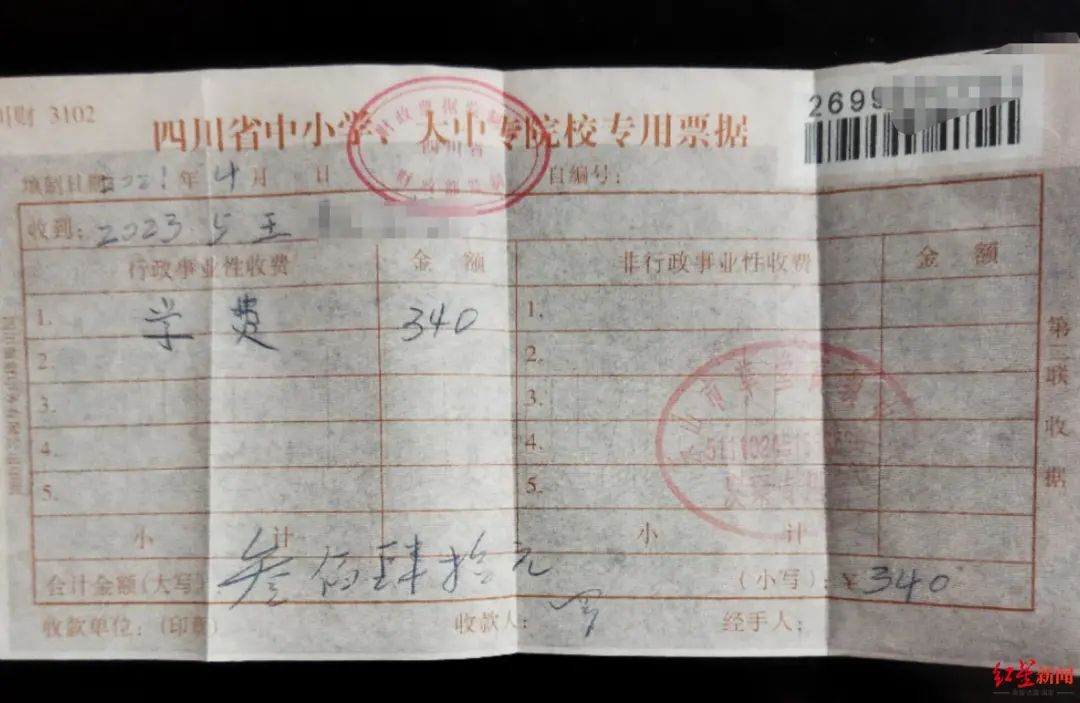 川财 3102
2699
四川省中小学、大中专院校专用票据
四川省
填制日期 2021年 4月 日 自编号:
收到: 2023.5 王
行政事业性收费 金 额 非行政事业性收费 金 额
1. 学 费 340 1.
2. 2.
3. 3.
4. 4.
5. 5.
小 计 小 计
合计金额(大写) 叁佰肆拾元 (小写): ¥340
收款单位: (印章) 收款人: 经手人:
第二联 收据
红星新闻